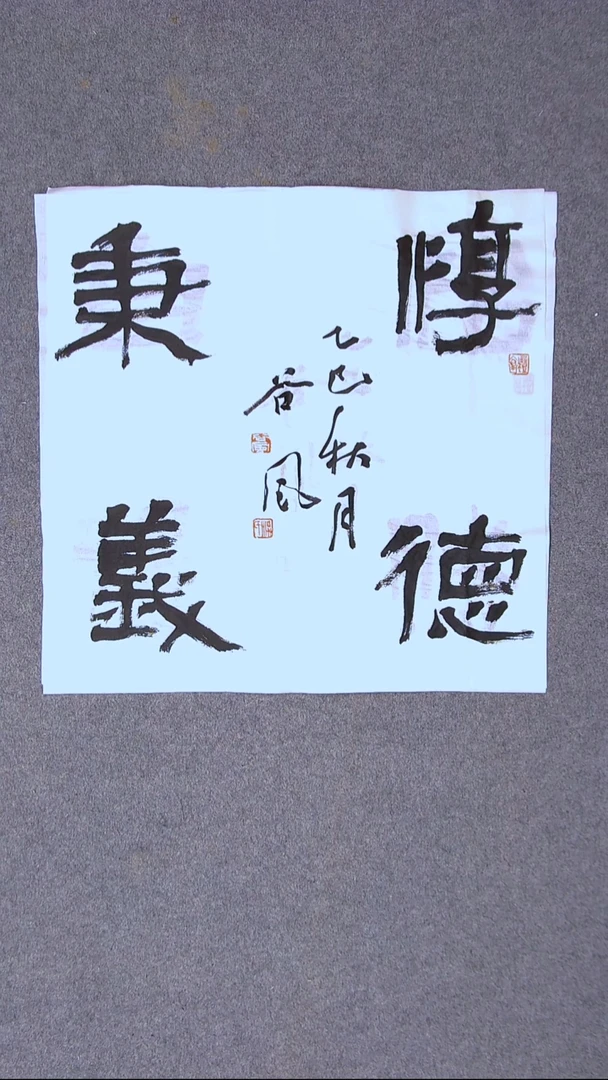 惇德
秉義
乙巳秋月
谷风